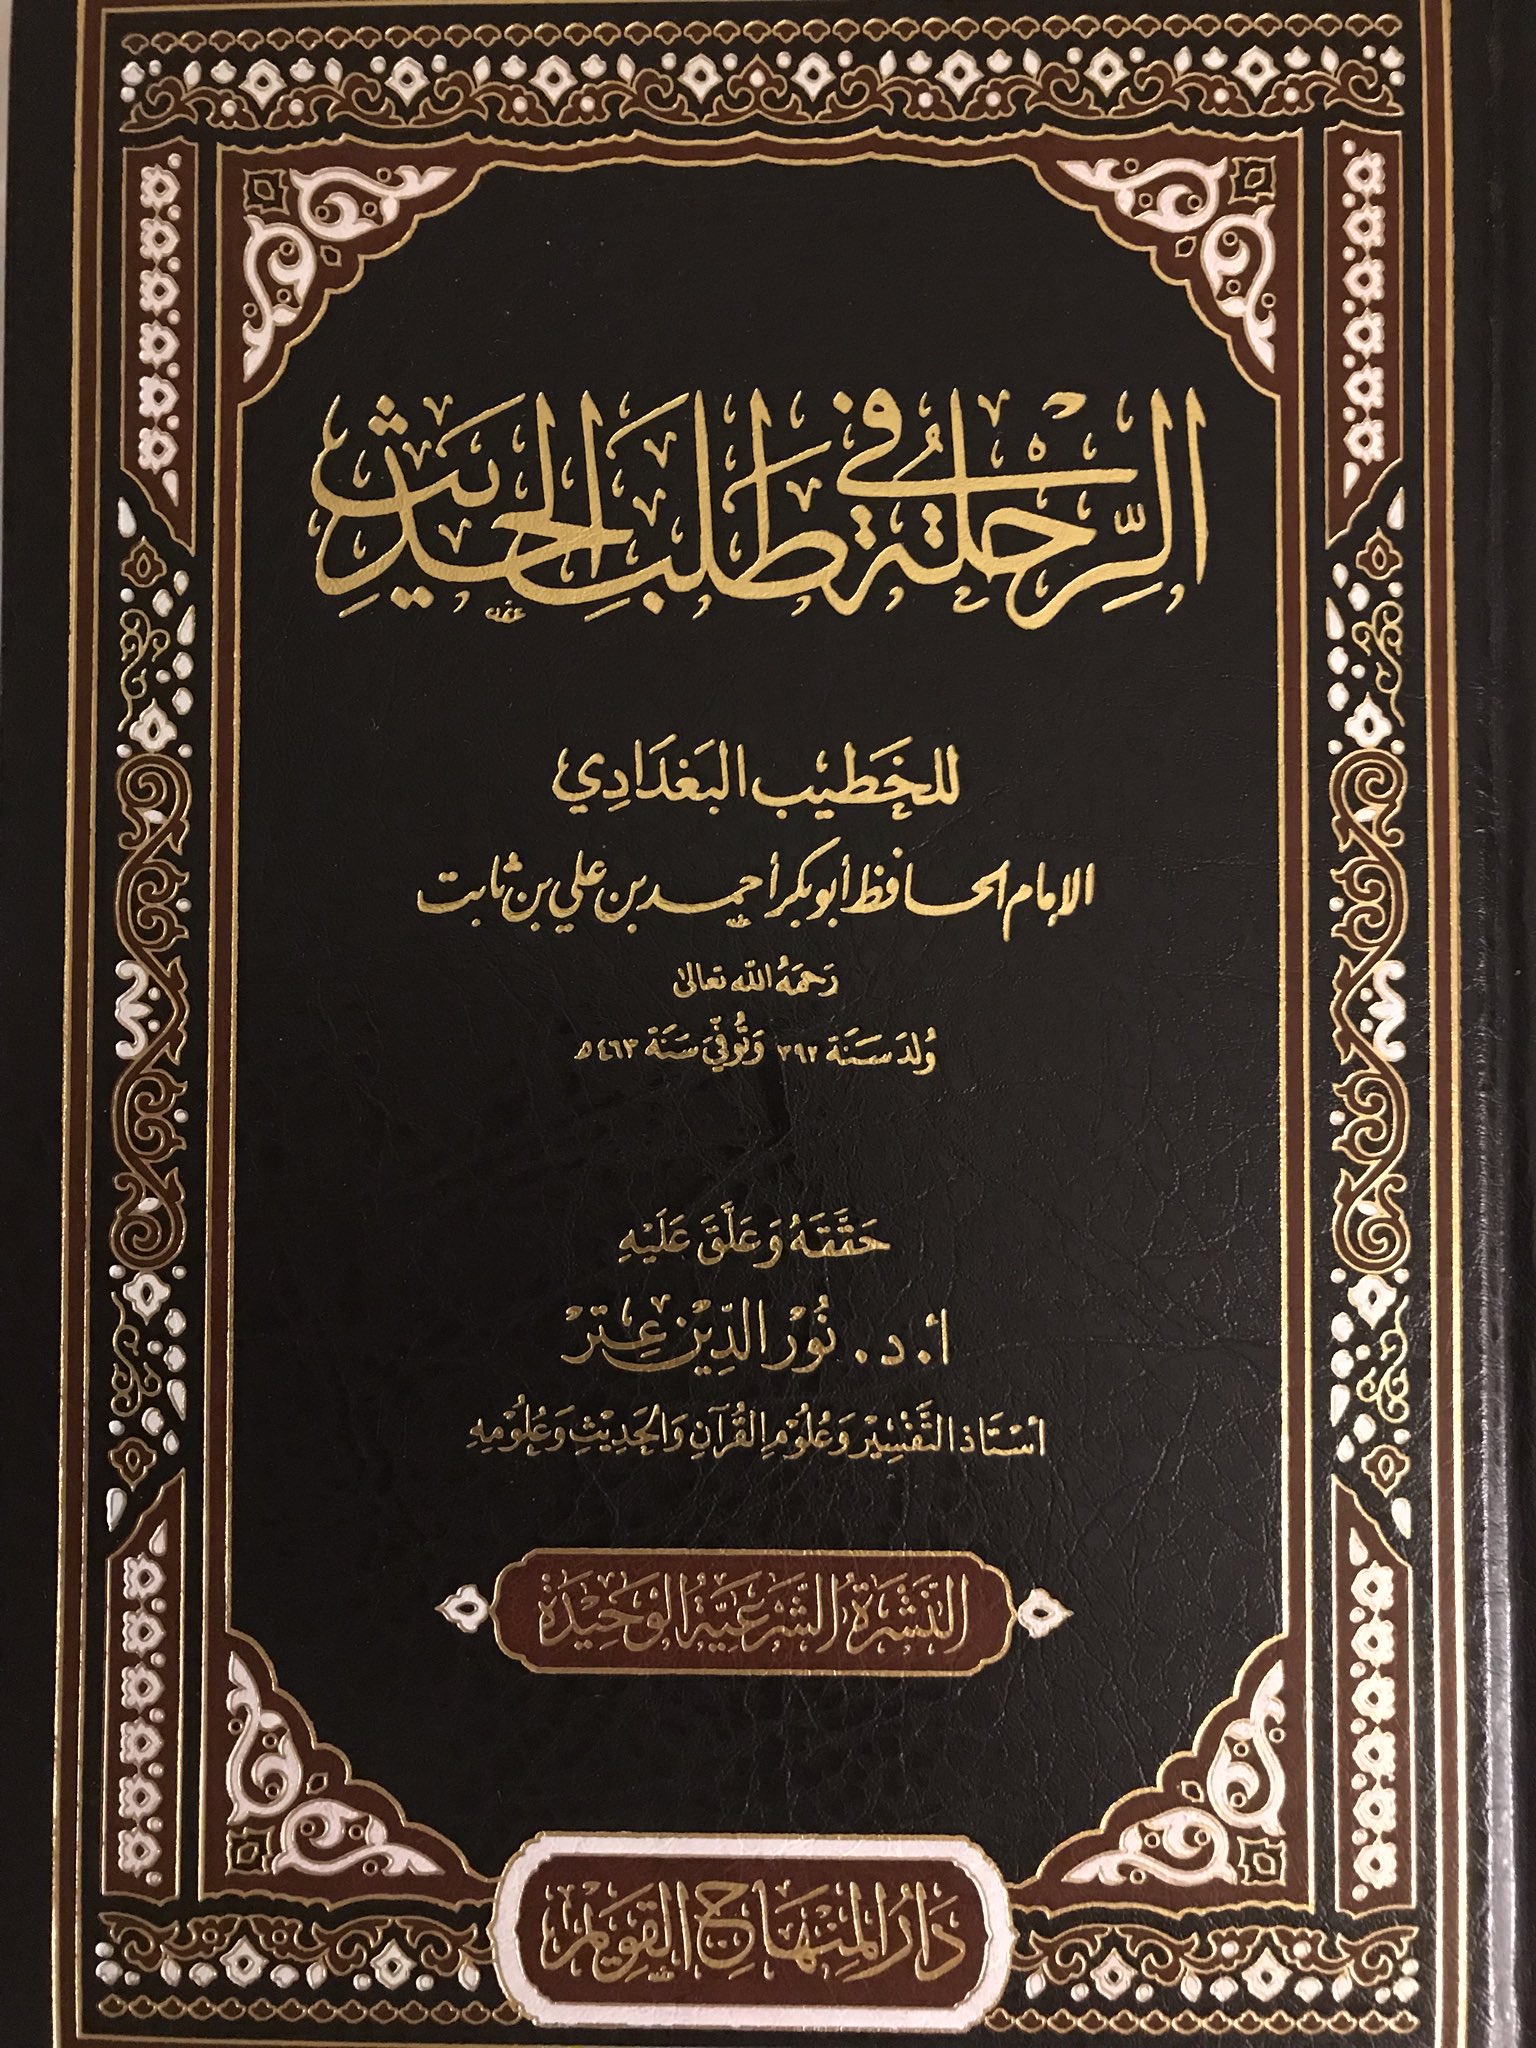 الرِّحْلَةُ فِي طَلَبِ الْحَدِيثِ
للخَطيْب البَغدَادِي
الإمام الحافظ أبو بكر أحمد بن علي بن ثابت
رَحمَهُ اللّه تعالى
وُلد سَنَة ٣٩٢ وَتُوفّيَ سَنَة ٤٦٣ ه
حَقَّقَهُ وَعَلَّقَ عَلَيْهِ
أ. د. نُوْر الدِّيْن عِتر
أسْتَاذ التَّفْسِيْر وَعُلُوْم القُرآنِ وَالحَدِيْثِ وَعُلُوْمِهِ
النَّشْرَةُ الشَّرْعِيَّةُ الوَحِيْدَةُ
دَارُ المِنْهَاجِ القَوِيْم